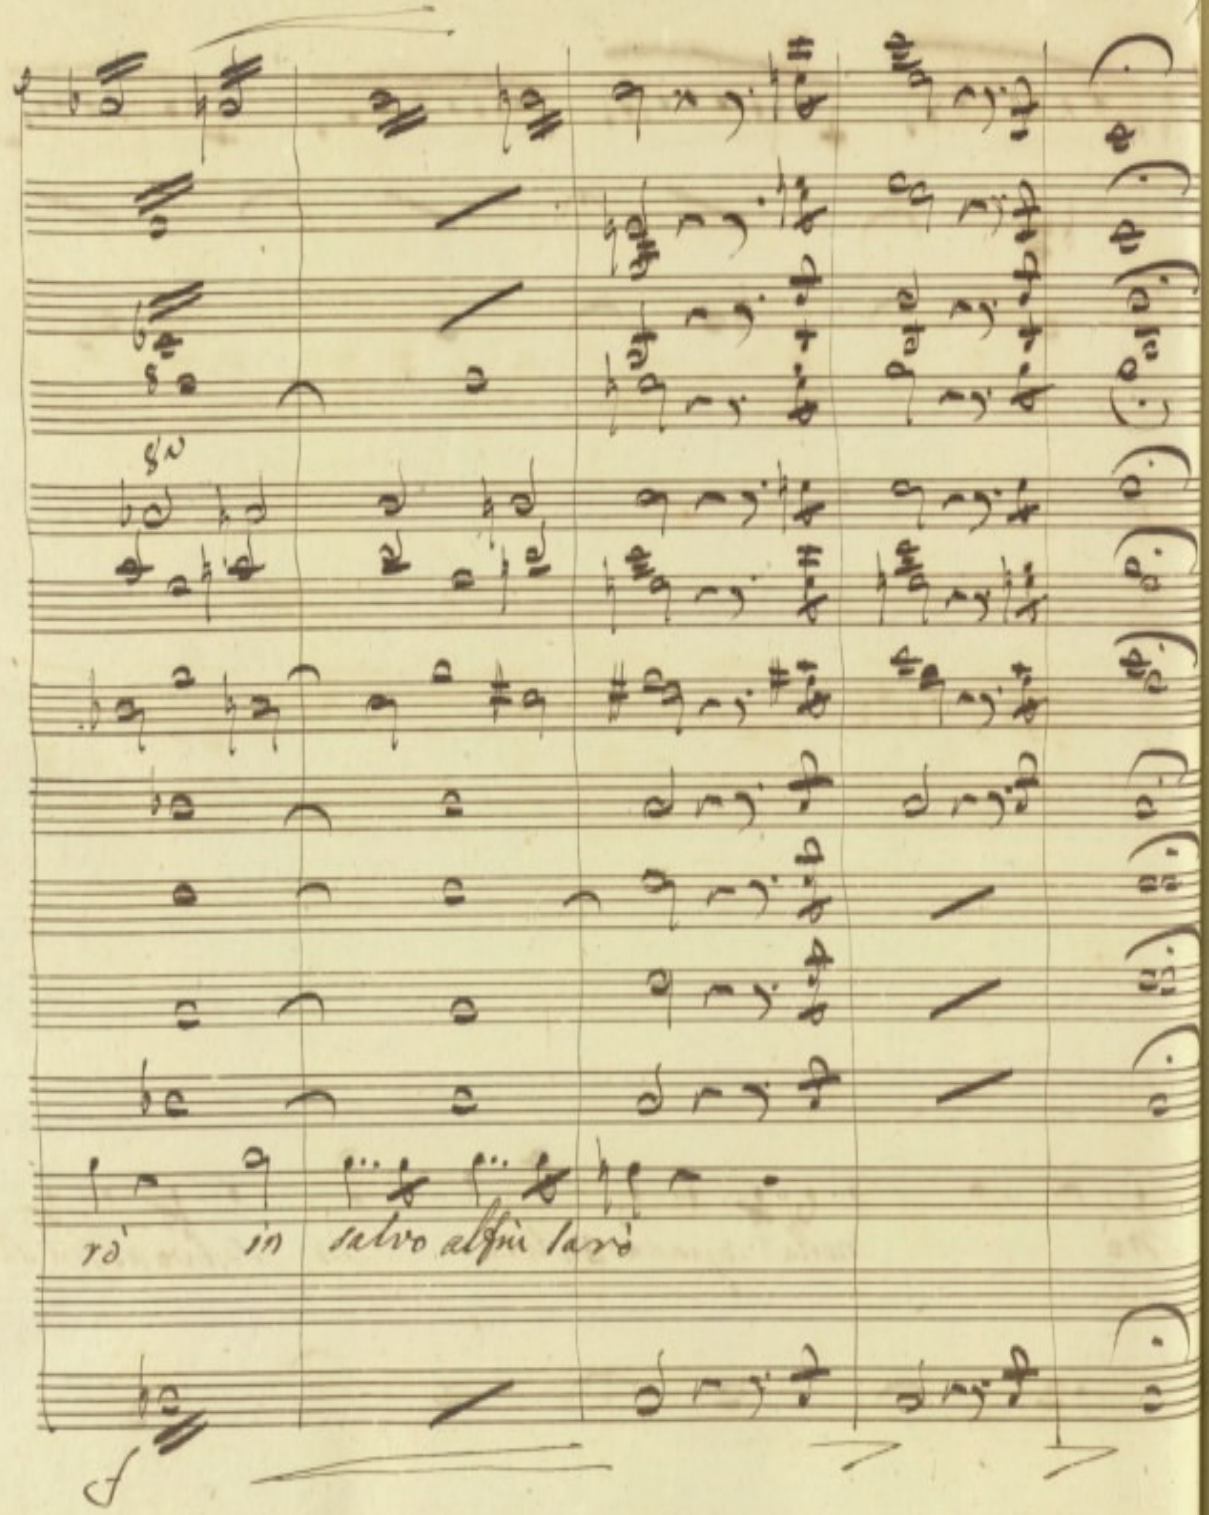 8
8ª
rò in salvo alfin sarò
f